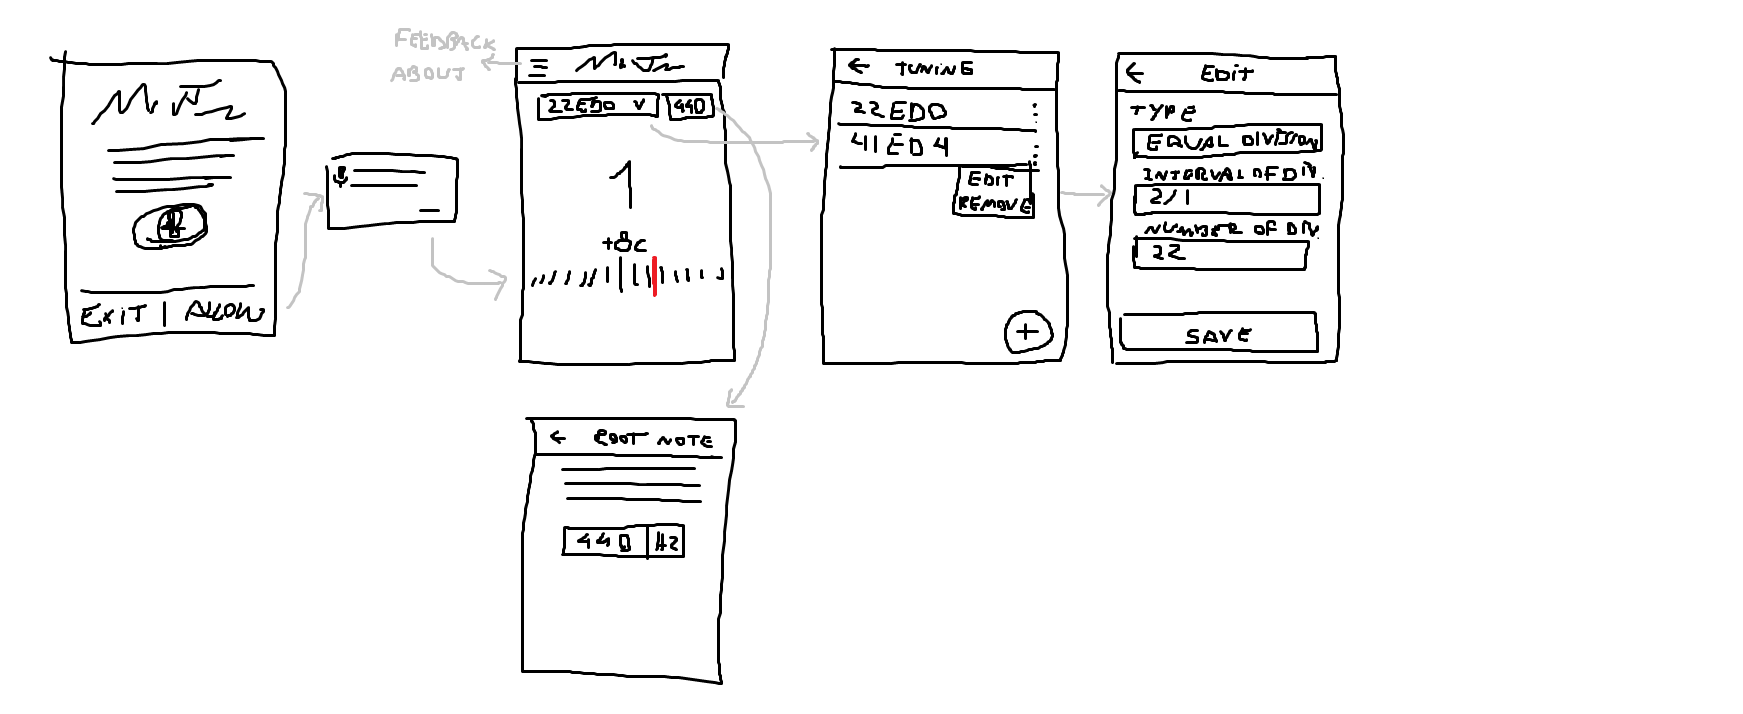 EXIT | ALLOW
FEEDBACK
ABOUT
22EDO V 440
1
+8c
TUNING
22EDO
41ED4
EDIT
REMOVE
+
EDIT
TYPE
EQUAL DIVISION
INTERVAL OF DIV.
2/1
NUMBER OF DIV.
22
SAVE
ROOT NOTE
440 HZ